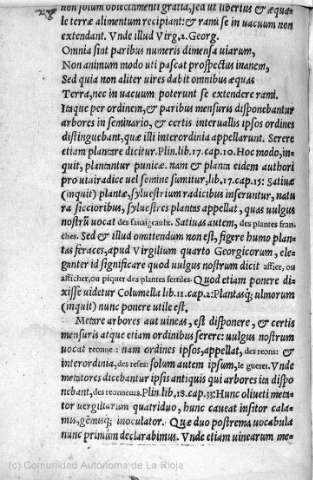 non solum oblectamenti gratia, sed ut liberius & æqua
le terræ alimentum recipiant: & rami se in vacuum non
extendant. Vnde illud Virg. 2. Georg.
Omnia sint paribus numeris dimensa viarum,
Non animum modo uti pascat prospectus inanem,
Sed quia non aliter vires dabit omnibus æquas
Terra, nec in vacuum poterunt se extendere rami.
Itaque per ordinem, & paribus mensuris disponebantur
arbores in seminario, & certis intervallis ipsos ordines
distinguebant, quæ illi interordinia appellarunt. Serere
etiam plantare dicitur. Plin. lib. 17. cap. 10. Hoc modo, in-
quit, plantantur punicæ. nam & planta eidem authori
pro viviradice vel semine sumitur, lib. 17. cap. 15: Sativæ
(inquit) plantæ, sylvestrium radicibus inseruntur, natu
ra siccioribus, sylvestres plantas appellat, quas vulgus
nostrũ vocat des sauuageaults. Sativas autem, des plantes fran-
ches. Sed & illud omittendum non est, figere humo plan-
tas feraces, apud Virgilium quarto Georgicorum, ele-
ganter id significare quod vulgus nostrum dicit afficer, ou
afficher, ou piquer des plantes fertiles. Quod etiam ponere di-
xisse videtur Columella lib. 11. cap. 2: Plantasq; ulmorum
(inquit) nunc ponere utile est.
Metare arbores aut vineas, est disponere, & certis
mensuris atque etiam ordinibus serere: vulgus nostrum
vocat : nam ordines ipsos, appellat, des &
interordinia, des solum autem ipsum, le gueret. Vnde
metatores dicebantur ipsis antiquis qui arbores ita dispo
nebant, des Plin. lib. 18. cap. 33: Hunc oliveti meta-
tor vergiliarum quatriduo, hunc caveat insitor cala-
mis, gẽmisq; inoculator. Quæ duo postrema vocabula
nunc primùm declarabimus. Vnde etiam vinearum me-
(c) Comunidad Autónoma de La Rioja